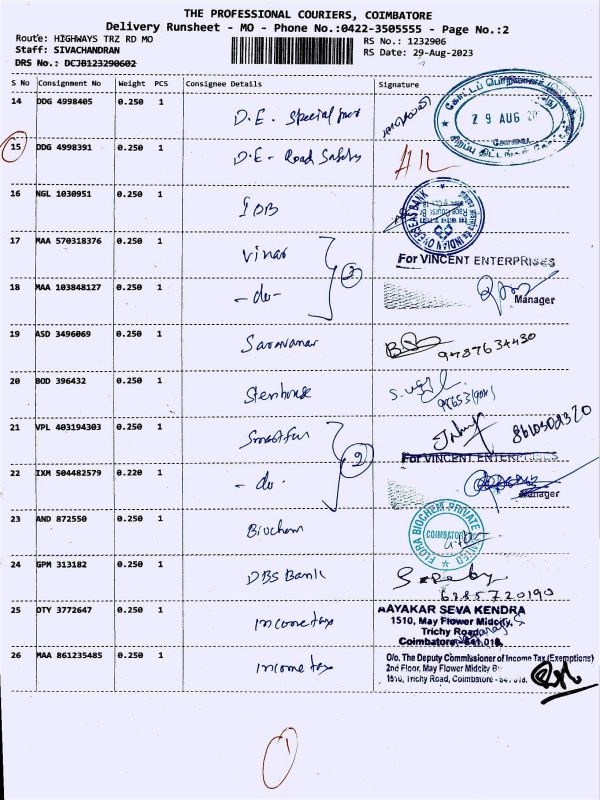 THE PROFESSIONAL COURIERS, COIMBATORE
Delivery Runsheet - MO - Phone No.:0422-3505555 - Page No.:2
Route: HIGHWAYS TRZ RD MO
RS No.: 1232906
Staff: SIVACHANDRAN
RS Date: 29-Aug-2023
DRS No.: DCJB123290602
S No Consignment No Weight PCS Consignee Details Signature
14 DDG 4998405 0.250 1 D.E. Special
29 AUG
15 DDG 4998391 0.250 1 D.E - Road Safety
16 NGL 1030951 0.250 1 IOB
INDIAN OVERSEAS BANK
17 MAA 570318376 0.250 1
For VINCENT ENTERPRISES
18 MAA 103848127 0.250 1 - do -
Manager
19 ASD 3496069 0.250 1 Saravanan
20 BOD 396432 0.250 1
21 VPL 403194303 0.250 1
For VINCENT ENTERPRISES
22 IXM 504482579 0.220 1 - do -
Manager
23 AND 872550 0.250 1 Biochem
FLORA BIOCHEM PRIVATE LIMITED
COIMBATORE
24 GPM 313182 0.250 1 DBS Bank
6385720190
25 OTY 3772647 0.250 1 Income tax
AAYAKAR SEVA KENDRA
1510, May Flower Midcity,
Trichy Road,
Coimbatore - 641 018.
26 MAA 861235485 0.250 1 Income tax
O/o. The Deputy Commissioner of Income Tax (Exemptions)
2nd Floor, May Flower Midcity
1510, Trichy Road, Coimbatore - 641 018.
1